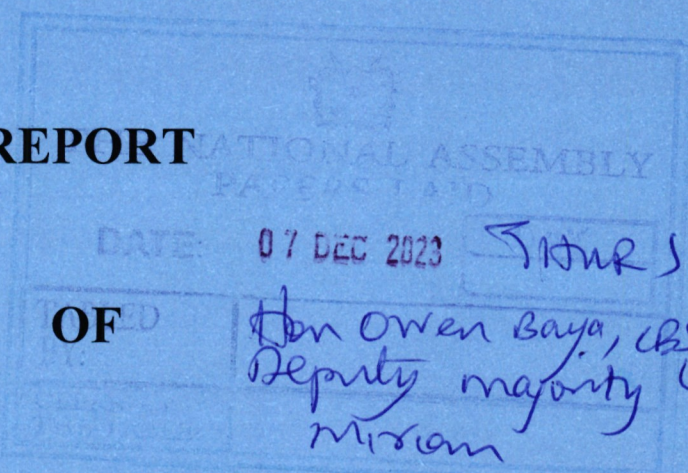 REPORT
NATIONAL ASSEMBLY
PAPERS LAID
DATE: 07 DEC 2023 THURS
OF
TABLED
BY:
Hon Owen Baya, CBS
Deputy majority
Miriam